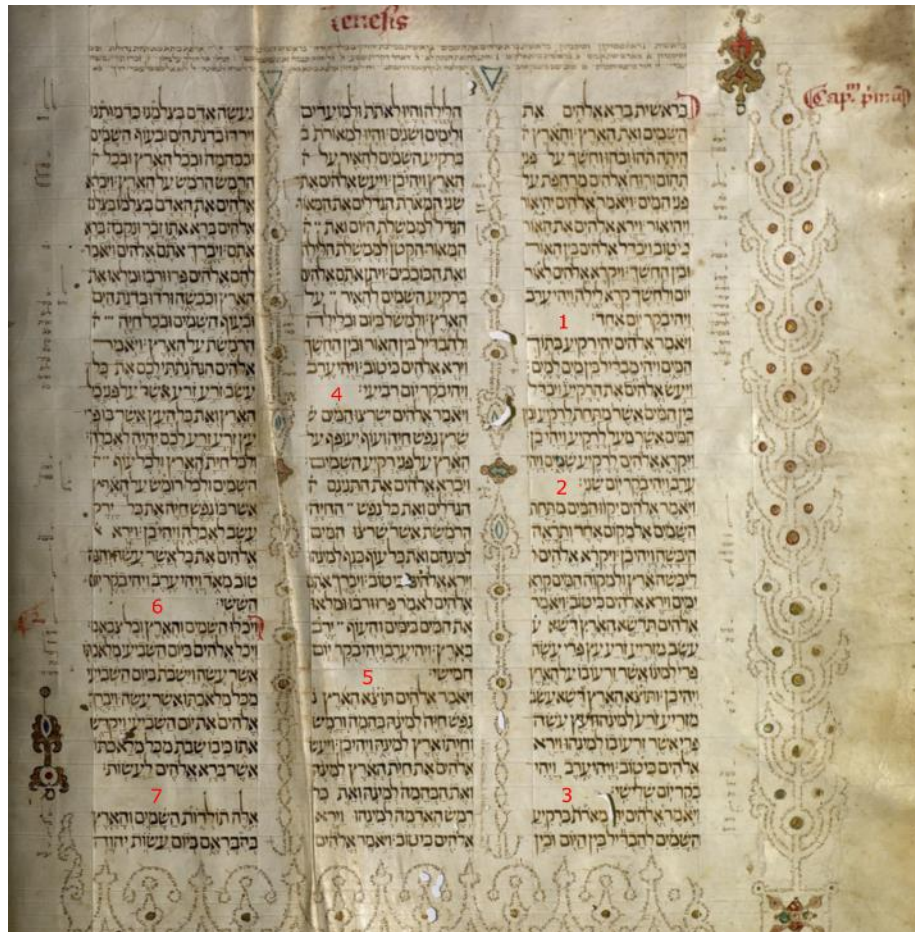 Genesis
Cap. primu
בראשית ברא אלהים את
השמים ואת הארץ והארץ ה
היתה תהו ובהו וחשך על פני
תהום ורוח אלהים מרחפת על
פני המים ויאמר אלהים יהי אור
ויהי אור וירא אלהים את האור
כי טוב ויבדל אלהים בין האור
ובין החשך ויקרא אלהים לאור
יום ולחשך קרא לילה ויהי ערב
ויהי בקר יום אחד׃ 1
ויאמר אלהים יהי רקיע בתוך
המים ויהי מבדיל בין מים למים
ויעש אלהים את הרקיע ויבדל
בין המים אשר מתחת לרקיע ובין
המים אשר מעל לרקיע ויהי כן
ויקרא אלהים לרקיע שמים ויהי
ערב ויהי בקר יום שני׃ 2
ויאמר אלהים יקוו המים מתחת
השמים אל מקום אחד ותראה
היבשה ויהי כן ויקרא אלהים ל
ליבשה ארץ ולמקוה המים קרא
ימים וירא אלהים כי טוב ויאמר
אלהים תדשא הארץ דשא ע
עשב מזריע זרע עץ פרי עשה
פרי למינו אשר זרעו בו על הארץ
ויהי כן ותוצא הארץ דשא עשב
מזריע זרע למינהו ועץ עשה
פרי אשר זרעו בו למינהו וירא
אלהים כי טוב ויהי ערב ויהי
בקר יום שלישי׃ 3
ויאמר אלהים יהי מארת ברקיע
השמים להבדיל בין היום ובין
הלילה והיו לאתת ולמועדים
ולימים ושנים והיו למאורת ב
ברקיע השמים להאיר על ה
הארץ ויהי כן ויעש אלהים את
שני המארת הגדלים את המאור
הגדל לממשלת היום ואת
המאור הקטן לממשלת הלילה
ואת הכוכבים ויתן אתם אלהים
ברקיע השמים להאיר על
הארץ ולמשל ביום ובלילה
ולהבדיל בין האור ובין החשך
וירא אלהים כי טוב ויהי ערב
ויהי בקר יום רביעי׃ 4
ויאמר אלהים ישרצו המים ש
שרץ נפש חיה ועוף יעופף על
הארץ על פני רקיע השמים
ויברא אלהים את התנינם ה
הגדלים ואת כל נפש החיה
הרמשת אשר שרצו המים
למינהם ואת כל עוף כנף למינהו
וירא אלהים כי טוב ויברך אתם
אלהים לאמר פרו ורבו ומלאו
את המים בימים והעוף ירב
בארץ ויהי ערב ויהי בקר יום
חמישי׃ 5
ויאמר אלהים תוצא הארץ נ
נפש חיה למינה בהמה ורמש
וחיתו ארץ למינה ויהי כן ויעש
אלהים את חית הארץ למינה
ואת הבהמה למינה ואת כל
רמש האדמה למינהו וירא
אלהים כי טוב ויאמר אלהים
נעשה אדם בצלמנו כדמותנו
וירדו בדגת הים ובעוף השמים
ובבהמה ובכל הארץ ובכל ה
הרמש הרמש על הארץ ויברא
אלהים את האדם בצלמו בצלם
אלהים ברא אתו זכר ונקבה ברא
אתם ויברך אתם אלהים ויאמר
להם אלהים פרו ורבו ומלאו את
הארץ וכבשה ורדו בדגת הים
ובעוף השמים ובכל חיה ה
הרמשת על הארץ ויאמר
אלהים הנה נתתי לכם את כל
עשב זרע זרע אשר על פני כל
הארץ ואת כל העץ אשר בו פרי
עץ זרע זרע לכם יהיה לאכלה
ולכל חית הארץ ולכל עוף ה
השמים ולכל רומש על הארץ
אשר בו נפש חיה את כל ירק
עשב לאכלה ויהי כן וירא א
אלהים את כל אשר עשה והנה
טוב מאד ויהי ערב ויהי בקר יום
הששי׃ 6
ויכלו השמים והארץ וכל צבאם
ויכל אלהים ביום השביעי מלאכתו
אשר עשה וישבת ביום השביעי
מכל מלאכתו אשר עשה ויברך
אלהים את יום השביעי ויקדש
אתו כי בו שבת מכל מלאכתו
אשר ברא אלהים לעשות׃
7
אלה תולדות השמים והארץ
בהבראם ביום עשות יהוה